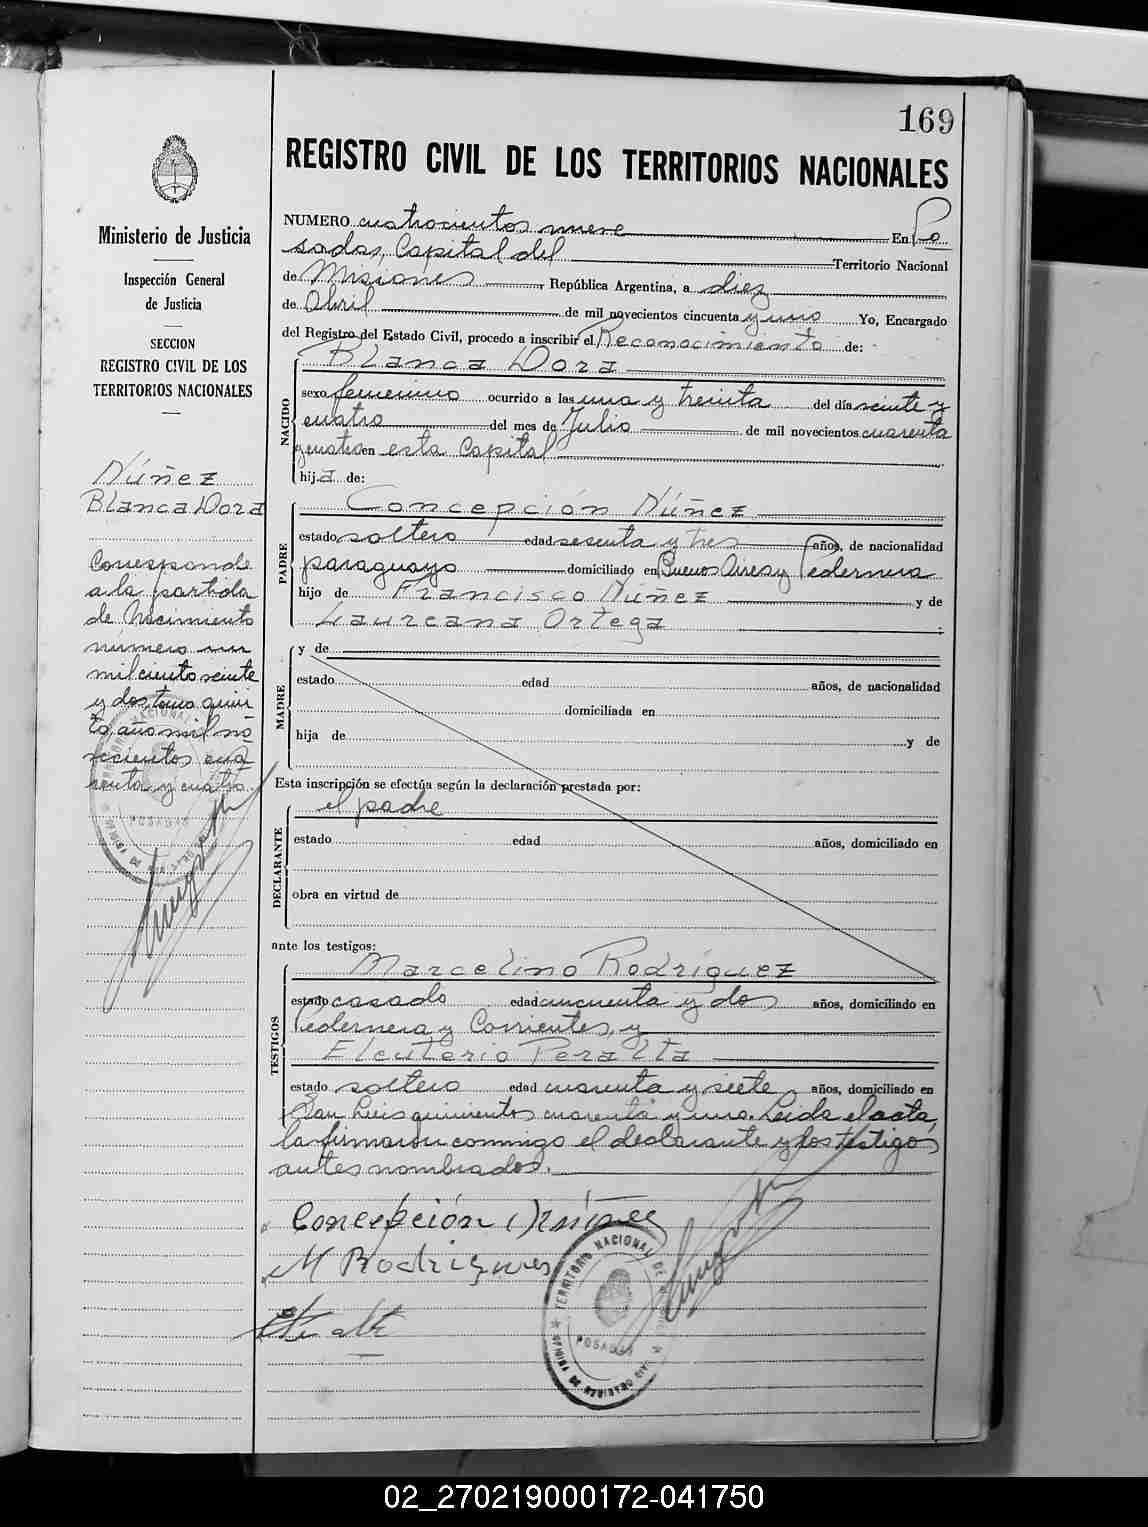 169
REGISTRO CIVIL DE LOS TERRITORIOS NACIONALES
Ministerio de Justicia
Inspección General
de Justicia
SECCION
REGISTRO CIVIL DE LOS
TERRITORIOS NACIONALES
Núñez
Blanca Dora
Corresponde
a la partida
de Nacimiento
número un
mil ciento veinte
y dos, tomo quin
to año mil no
vecientos cua
renta y cuatro.
NUMERO cuatrocientos nueve En Po
sadas, Capital del Territorio Nacional
de Misiones, República Argentina, a diez
de Abril de mil novecientos cincuenta y uno Yo, Encargado
del Registro del Estado Civil, procedo a inscribir el Reconocimiento de:
Blanca Dora
NACIDO
sexo femenino ocurrido a las una y treinta del día veinte y
cuatro del mes de Julio de mil novecientos cuarenta
y cuatro en esta Capital
hija de:
PADRE
Concepción Núñez
estado soltero edad sesenta y tres años, de nacionalidad
paraguayo domiciliado en Buenos Aires y Pedernera
hijo de Francisco Núñez y de
Laureana Ortega ;
MADRE
y de
estado edad años, de nacionalidad
domiciliada en
hija de y de
Esta inscripción se efectúa según la declaración prestada por:
el padre
DECLARANTE
estado edad años, domiciliado en
obra en virtud de
ante los testigos:
TESTIGOS
Marcelino Rodríguez
estado casado edad cincuenta y dos años, domiciliado en
Pedernera y Corrientes, y
Eleuterio Peralta
estado soltero edad cuarenta y siete años, domiciliado en
San Luis quinientos cuarenta y uno. Leida el acta,
la firmaron conmigo el declarante y los testigos
antes nombrados.
Concepción Núñez
M Rodrigues
TERRITORIO NACIONAL DE
POSADAS
02_270219000172-041750